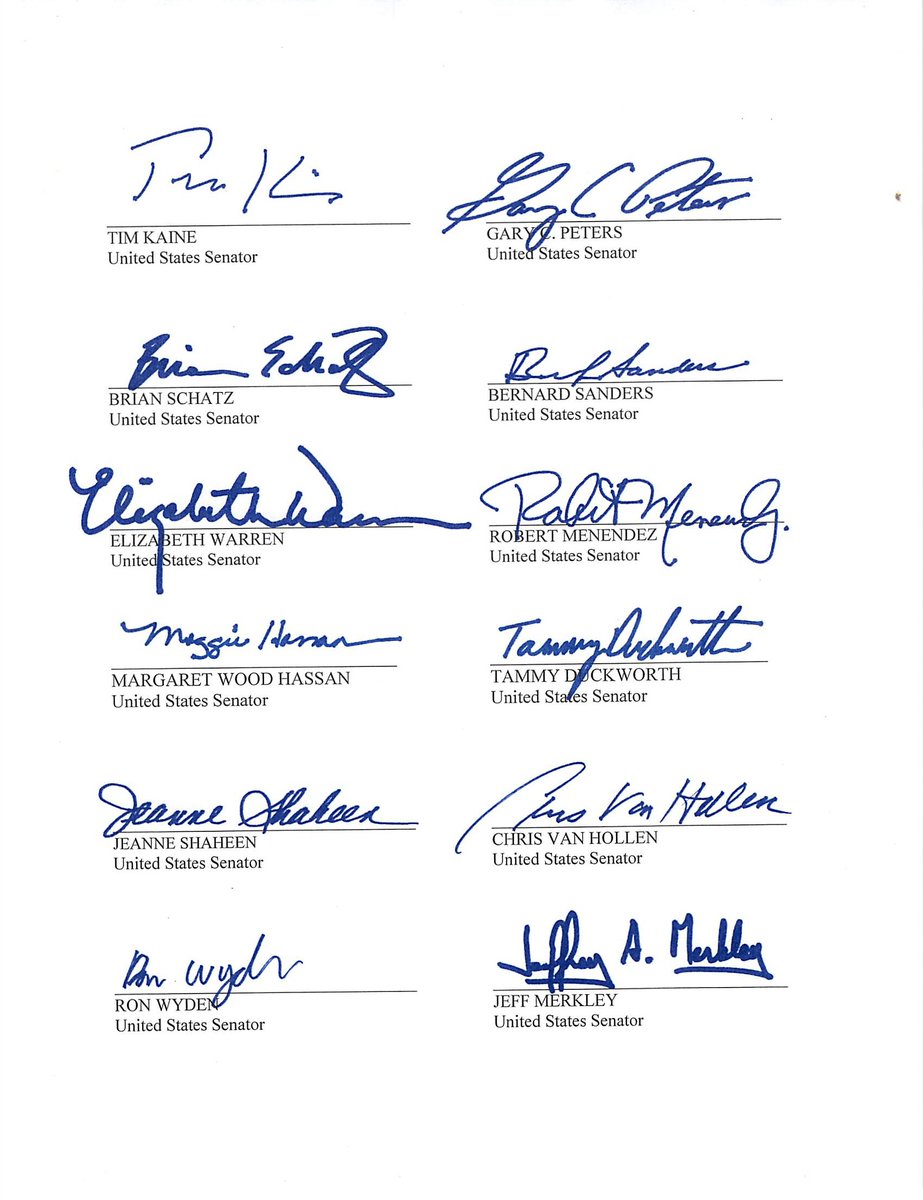 Tim Kaine
Gary C Peters
TIM KAINE
GARY C. PETERS
United States Senator
United States Senator
Brian Schatz
Bernard Sanders
BRIAN SCHATZ
BERNARD SANDERS
United States Senator
United States Senator
Elizabeth Warren
Robert Menendez.
ELIZABETH WARREN
ROBERT MENENDEZ
United States Senator
United States Senator
Maggie Hassan
Tammy Duckworth
MARGARET WOOD HASSAN
TAMMY DUCKWORTH
United States Senator
United States Senator
Jeanne Shaheen
Chris Van Hollen
JEANNE SHAHEEN
CHRIS VAN HOLLEN
United States Senator
United States Senator
Ron Wyden
Jeffrey A. Merkley
RON WYDEN
JEFF MERKLEY
United States Senator
United States Senator